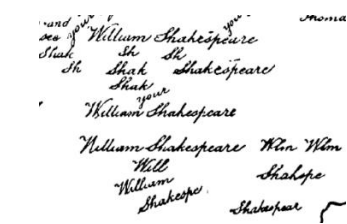 and your your Thomas
see William Shakespeare
Shak Sh Sh
Sh Shak Shakespeare
Shak
your
William Shakespeare
William Shakespeare Wlm Wlm
Will Shakspe
William
Shakespe Shakespear